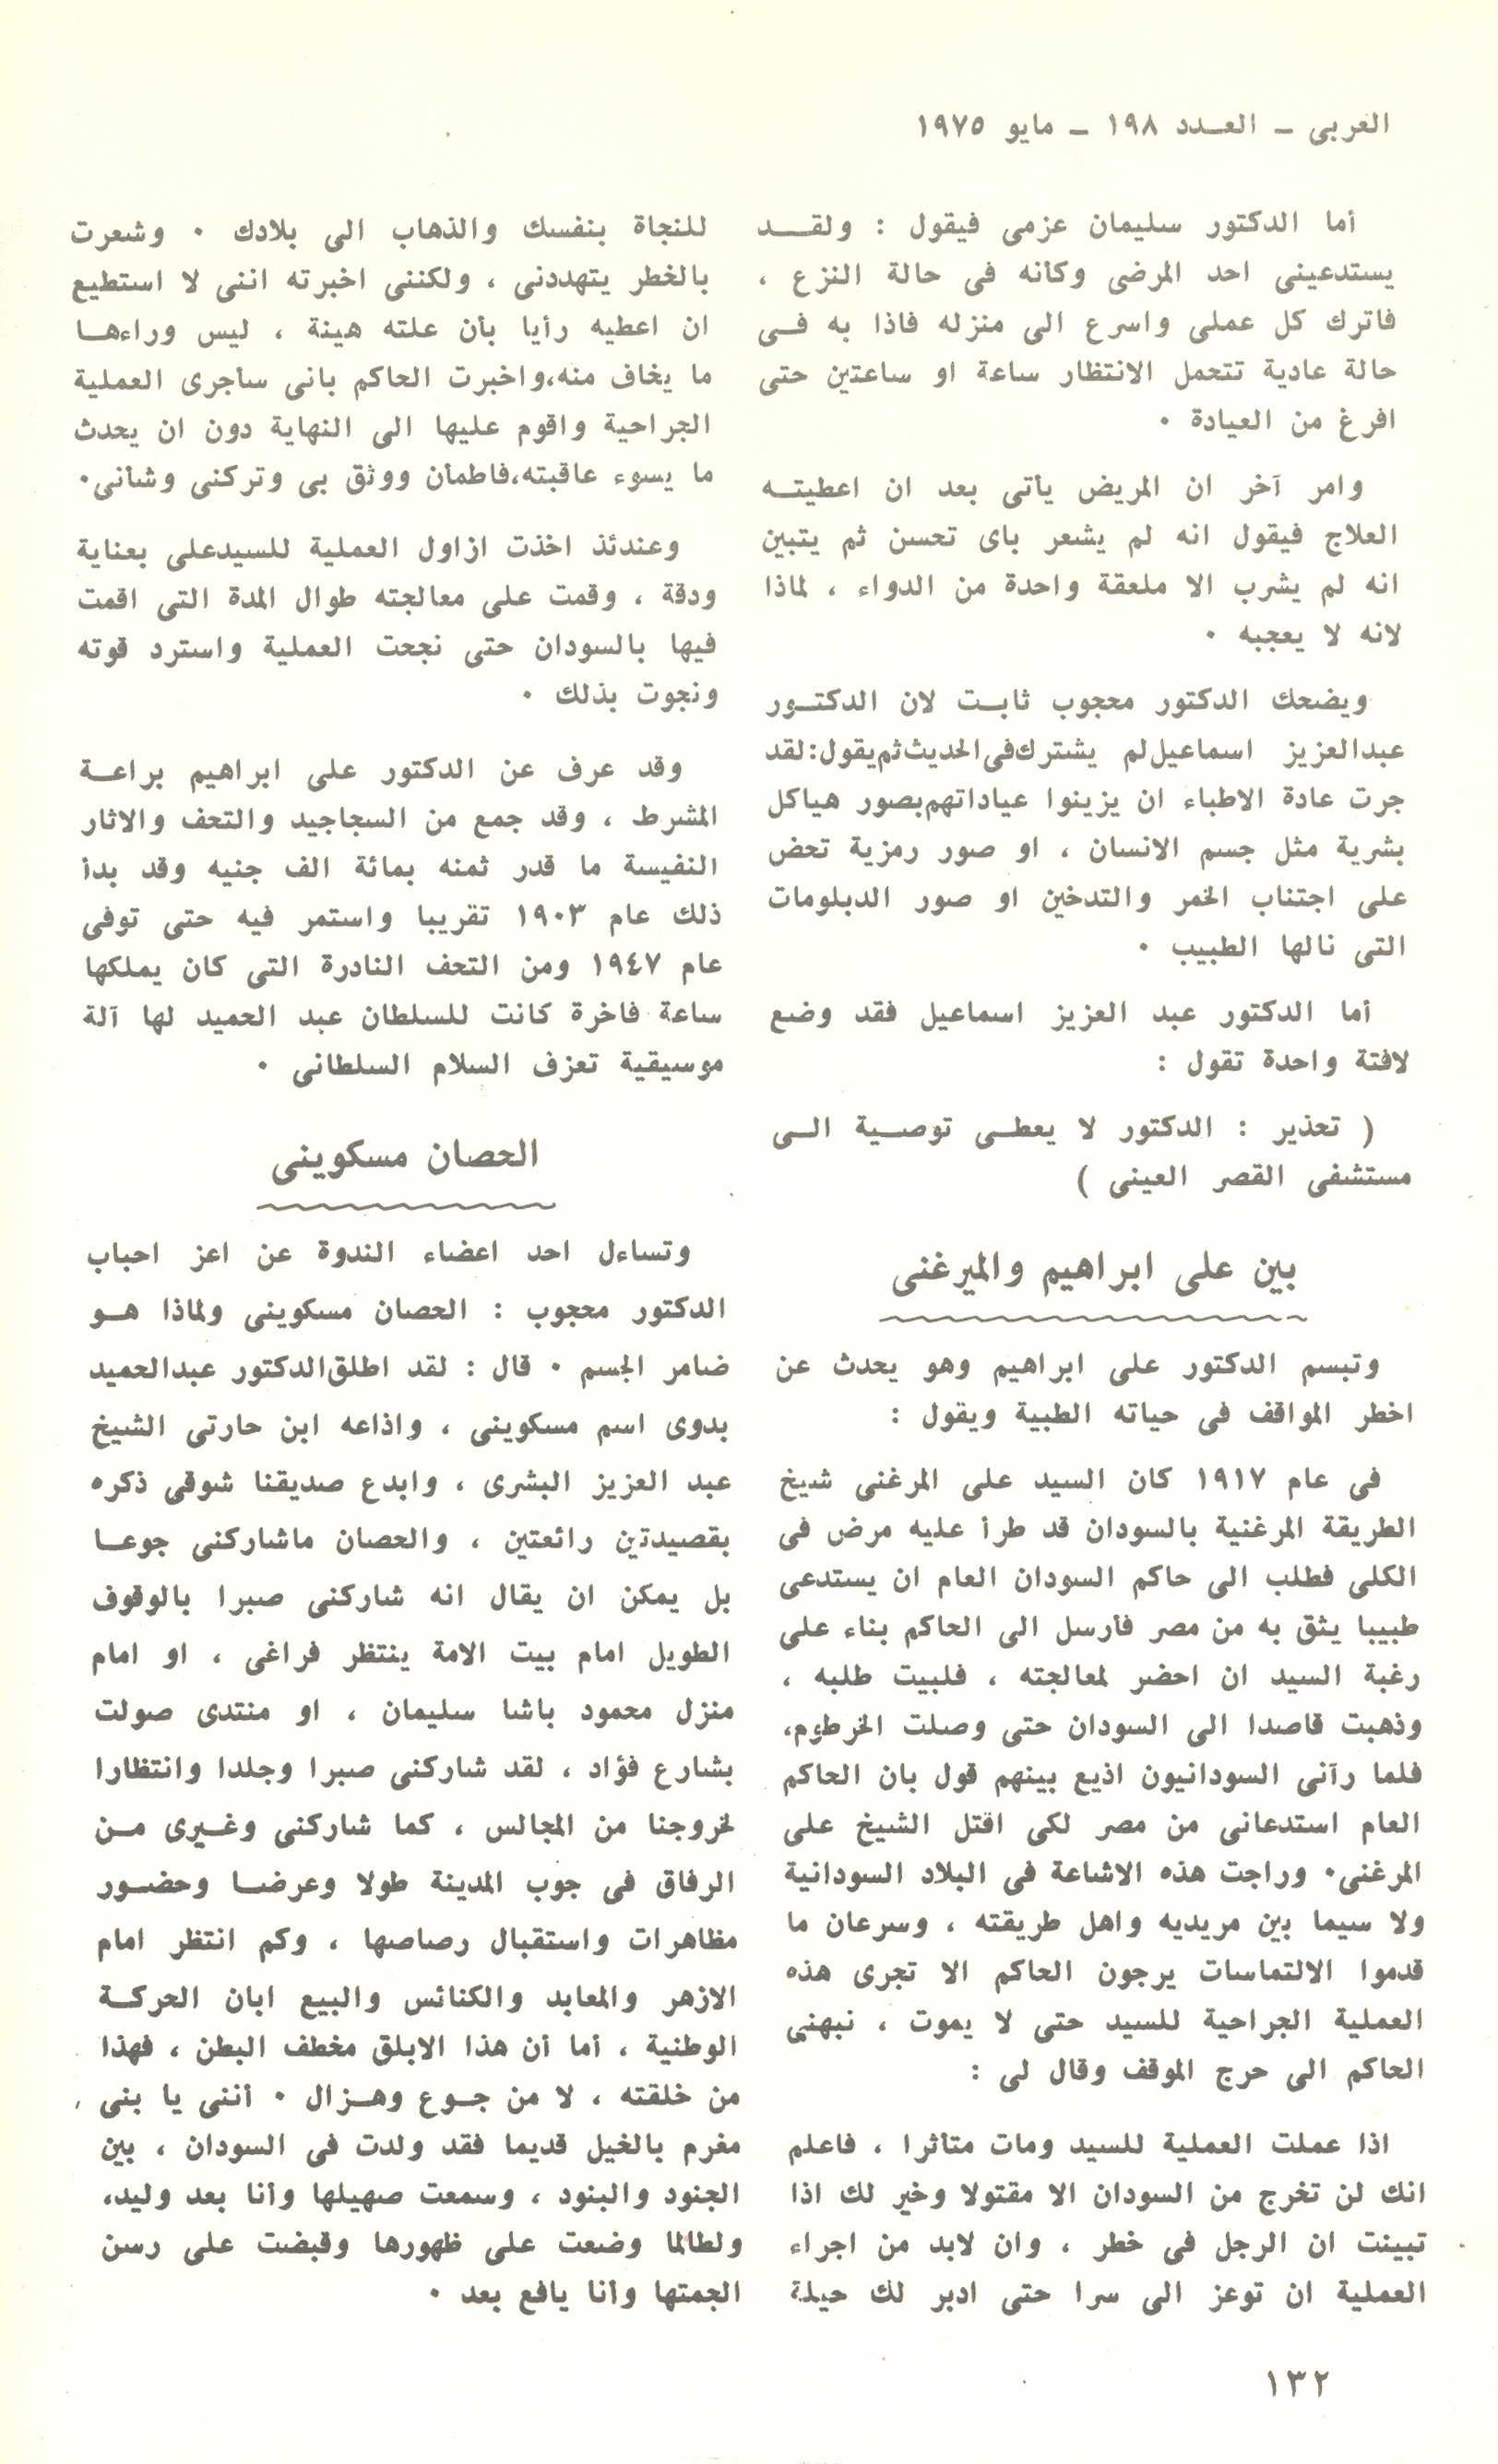 العربى ـ العـدد ١٩٨ ـ مايو ١٩٧٥
أما الدكتور سليمان عزمى فيقول : ولقـد
يستدعينى احد المرضى وكأنه فى حالة النزع ،
فاترك كل عملى واسرع الى منزله فاذا به فـى
حالة عادية تتحمل الانتظار ساعة او ساعتين حتى
افرغ من العيادة ٠
وامر آخر ان المريض يأتى بعد ان اعطيتـه
العلاج فيقول انه لم يشعر باى تحسن ثم يتبين
انه لم يشرب الا ملعقة واحدة من الدواء ، لماذا
لانه لا يعجبه ٠
ويضحك الدكتور محجوب ثابـت لان الدكتـور
عبدالعزيز اسماعيل لم يشترك فى الحديث ثم يقول : لقد
جرت عادة الاطباء ان يزينوا عياداتهم بصور هياكل
بشرية مثل جسم الانسان ، او صور رمزية تحض
على اجتناب الخمر والتدخين او صور الدبلومات
التى نالها الطبيب ٠
أما الدكتور عبد العزيز اسماعيل فقد وضع
لافتة واحدة تقول :
( تحذير : الدكتور لا يعطـى توصـية الـى
مستشفى القصر العينى )
بين على ابراهيم والميرغنى
وتبسم الدكتور على ابراهيم وهو يحدث عن
اخطر المواقف فى حياته الطبية ويقول :
فى عام ١٩١٧ كان السيد على المرغنى شيخ
الطريقة المرغنية بالسودان قد طرأ عليه مرض فى
الكلى فطلب الى حاكم السودان العام ان يستدعى
طبيبا يثق به من مصر فأرسل الى الحاكم بناء على
رغبة السيد ان احضر لمعالجته ، فلبيت طلبه ،
وذهبت قاصدا الى السودان حتى وصلت الخرطوم،
فلما رآنى السودانيون اذيع بينهم قول بان الحاكم
العام استدعانى من مصر لكى اقتل الشيخ على
المرغنى٠ وراجت هذه الاشاعة فى البلاد السودانية
ولا سيما بين مريديه واهل طريقته ، وسرعان ما
قدموا الالتماسات يرجون الحاكم الا تجرى هذه
العملية الجراحية للسيد حتى لا يموت ، نبهنى
الحاكم الى حرج الموقف وقال لى :
اذا عملت العملية للسيد ومات متأثرا ، فاعلم
انك لن تخرج من السودان الا مقتولا وخير لك اذا
تبينت ان الرجل فى خطر ، وان لابد من اجراء
العملية ان توعز الى سرا حتى ادبر لك حيلة
للنجاة بنفسك والذهاب الى بلادك ٠ وشعرت
بالخطر يتهددنى ، ولكننى اخبرته اننى لا استطيع
ان اعطيه رأيا بأن علته هينة ، ليس وراءهـا
ما يخاف منه،واخبرت الحاكم بانى سأجرى العملية
الجراحية واقوم عليها الى النهاية دون ان يحدث
ما يسوء عاقبته،فاطمأن ووثق بى وتركنى وشأنى٠
وعندئذ اخذت ازاول العملية للسيدعلى بعناية
ودقة ، وقمت على معالجته طوال المدة التى اقمت
فيها بالسودان حتى نجحت العملية واسترد قوته
ونجوت بذلك ٠
وقد عرف عن الدكتور على ابراهيم براعـة
المشرط ، وقد جمع من السجاجيد والتحف والاثار
النفيسة ما قدر ثمنه بمائة الف جنيه وقد بدأ
ذلك عام ١٩٠٣ تقريبا واستمر فيه حتى توفى
عام ١٩٤٧ ومن التحف النادرة التى كان يملكها
ساعة فاخرة كانت للسلطان عبد الحميد لها آلة
موسيقية تعزف السلام السلطانى ٠
الحصان مسكوينى
وتساءل احد اعضاء الندوة عن اعز احباب
الدكتور محجوب : الحصان مسكوينى ولماذا هـو
ضامر الجسم ٠ قال : لقد اطلق الدكتور عبدالحميد
بدوى اسم مسكوينى ، واذاعه ابن حارتى الشيخ
عبد العزيز البشرى ، وابدع صديقنا شوقى ذكره
بقصيدتين رائعتين ، والحصان ماشاركنى جوعـا
بل يمكن ان يقال انه شاركنى صبرا بالوقوف
الطويل امام بيت الامة ينتظر فراغى ، او امام
منزل محمود باشا سليمان ، او منتدى صولت
بشارع فؤاد ، لقد شاركنى صبرا وجلدا وانتظارا
لخروجنا من المجالس ، كما شاركنى وغـيرى مـن
الرفاق فى جوب المدينة طولا وعرضـا وحضـور
مظاهرات واستقبال رصاصها ، وكم انتظر امام
الازهر والمعابد والكنائس والبيع ابان الحركـة
الوطنية ، أما أن هذا الابلق مخطف البطن ، فهذا
من خلقته ، لا من جـوع وهـزال ٠ أننى يا بنى
مغرم بالخيل قديما فقد ولدت فى السودان ، بين
الجنود والبنود ، وسمعت صهيلها وأنا بعد وليد،
ولطالما وضعت على ظهورها وقبضت على رسن
الجمتها وأنا يافع بعد ٠
١٣٢